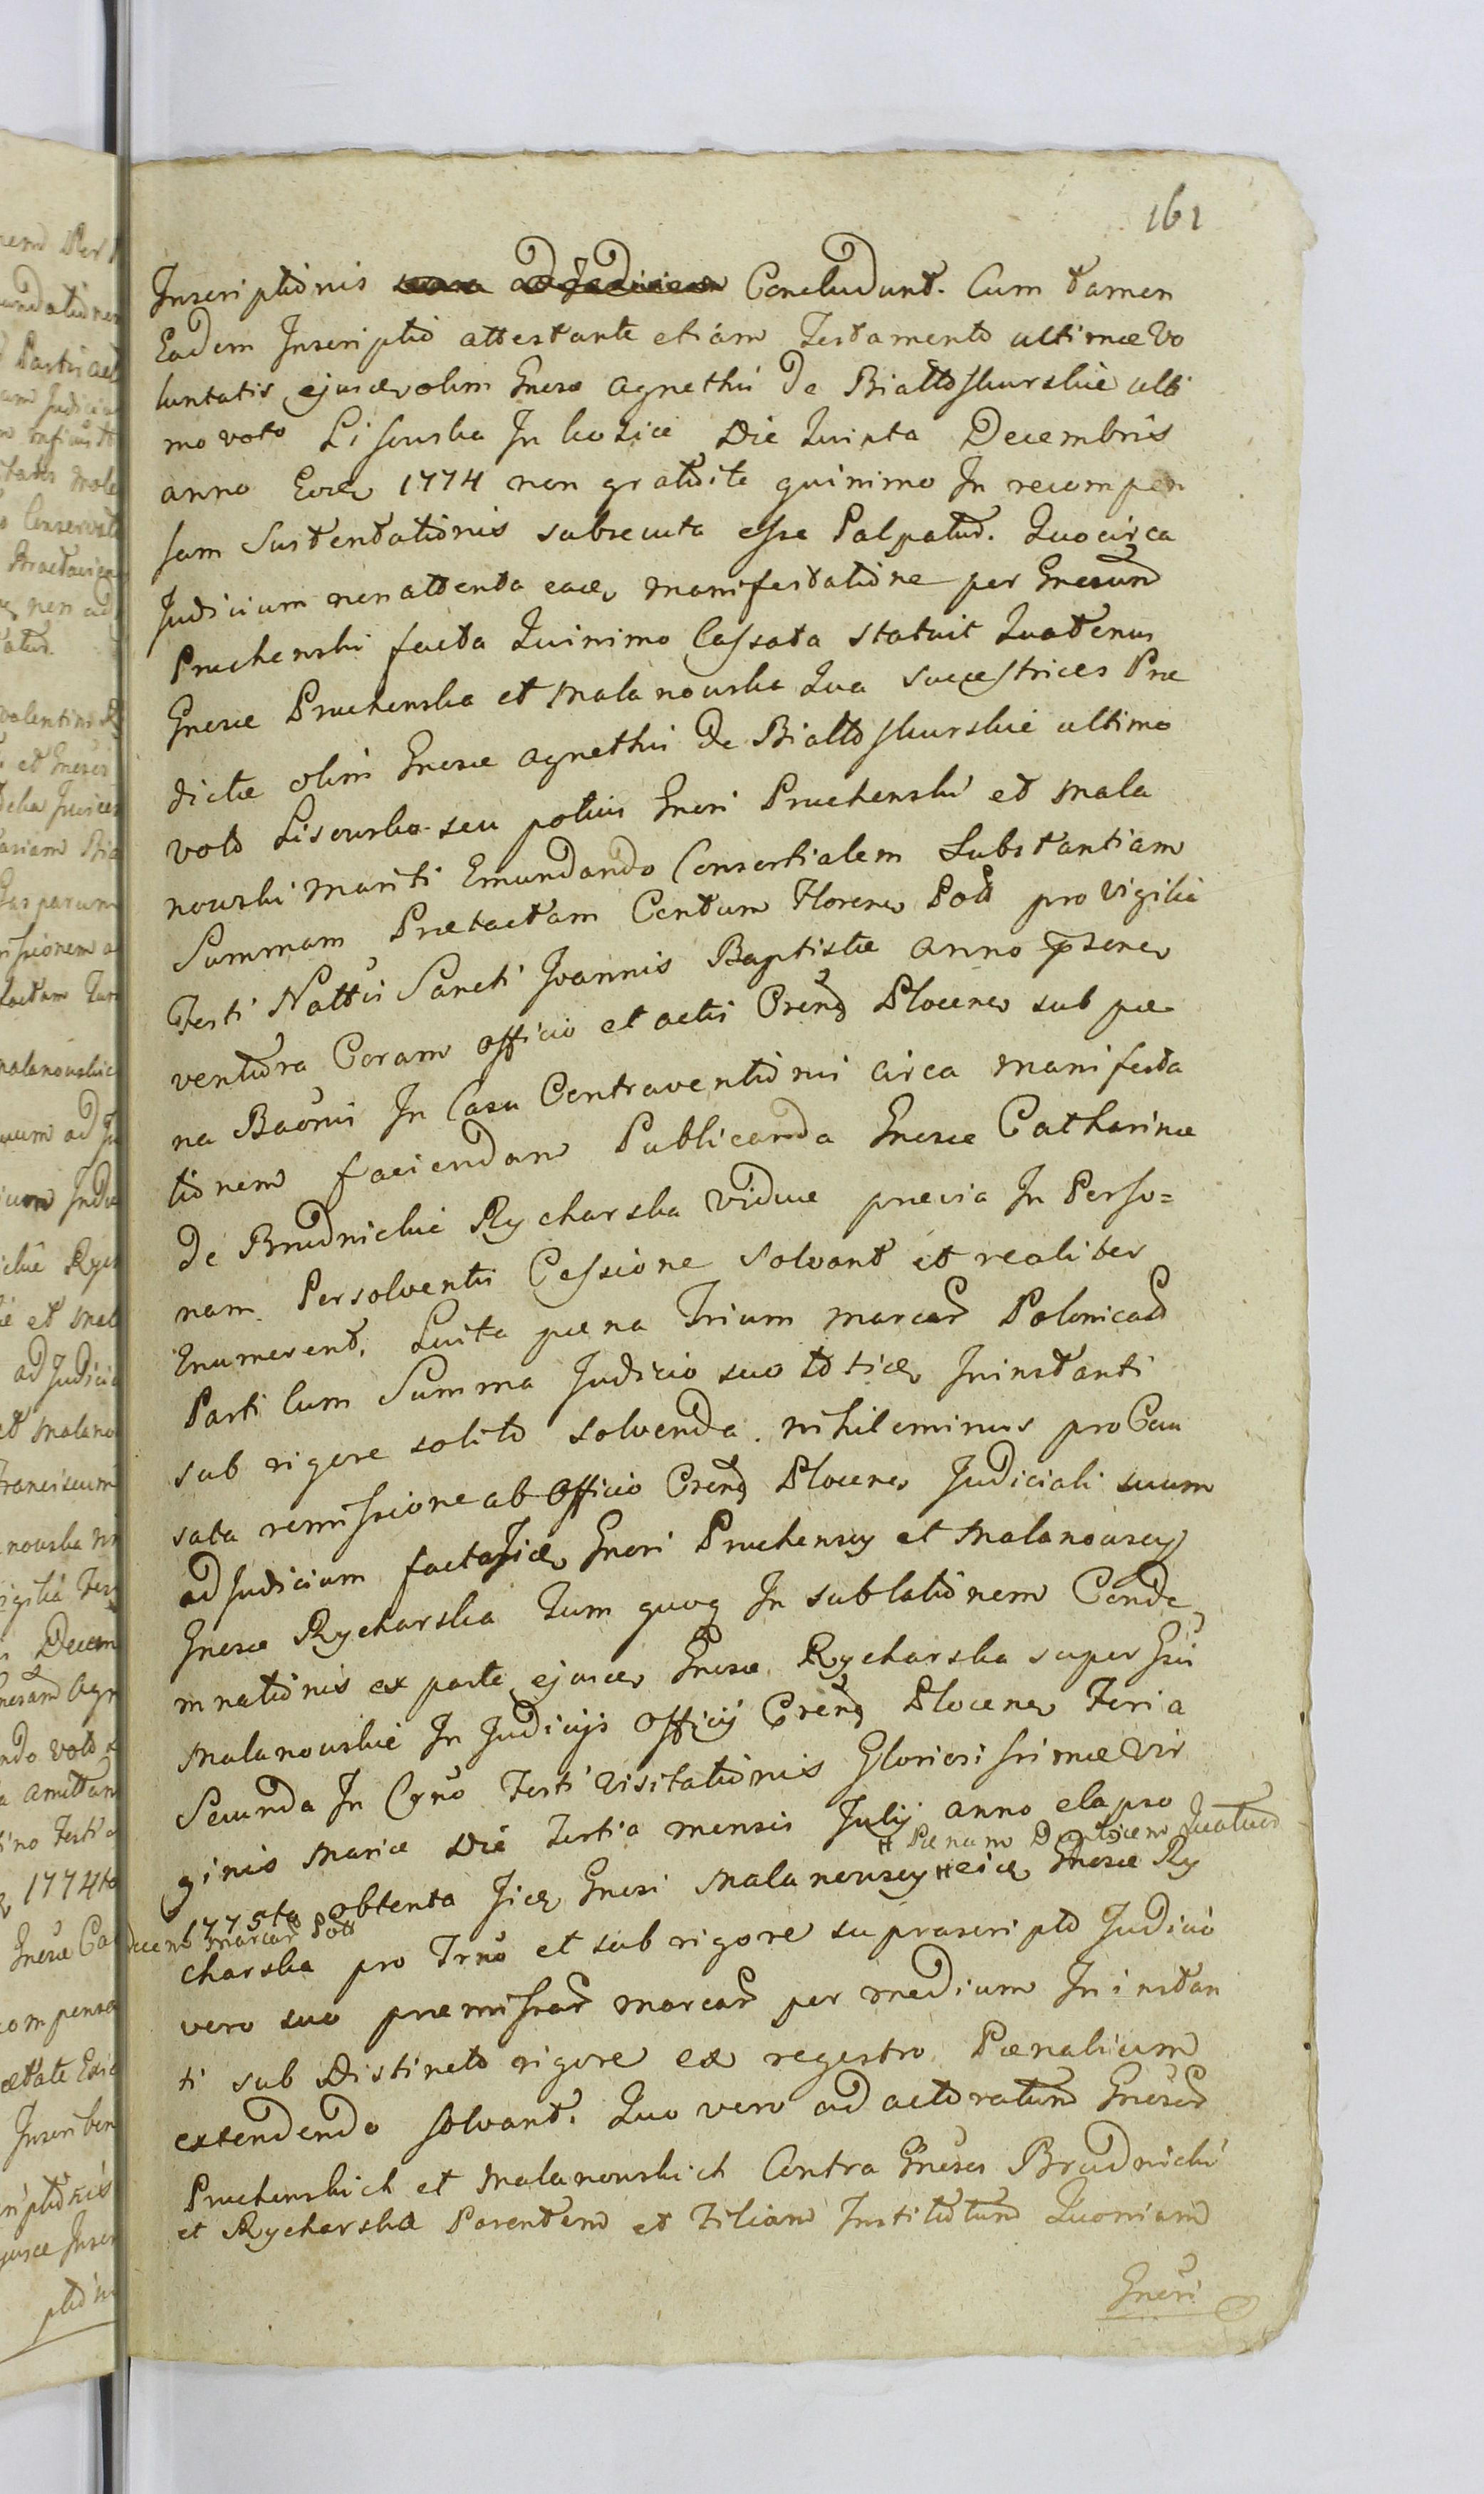 161
Inscriptionis Concludunt. Cum tamen
Eadem Inscriptio attestante etiam Testamento ultimæ Vo
luntatis ejusce olim Gnosæ Agnethis De Białłoskurskie ulti
mo voto Lisowska In Die Quinta Decembris
anno Eoce 1774 non gratuite quinimo In recompen
sam Sustentationis subsecuta esse Palpatur. Quocirca
Judicium non attenta eace manifestatione per Gnosum
Pruchenski facta Quinimo Cassata statuit Quatenus
Gnosæ Pruchenska et Malanowska Qua successtrices Præ
dictæ olim Gnosæ Agnethis De Białłoskurskie ultimo
voto Lisowska seu potius Gnosi Pruchenski et Mala
nowski Mariti Emundando Consortialem Substantiam
Summam Prætactam Centum Floren Poll pro Vigilia
Festi Nattis Sancti Joannis Baptistæ anno præsene
ventura Coram Officio et actis Crensz Plocens sub pæ
na Baonis In Casu Contraventionis circa manifesta
tionem faciendam Publicanda Gnosæ Catharinæ
De Brudnickie Rycharska Viduæ prævia In Perso=
nam Persolventis Cessione Solvant et realiter
Enumerent. Luita pæna Trium marcar Polonicar
Parti Cum Summa Judicio suo totice Ininstanti
sub rigore solito solvenda. nihileminus pro Cau
sata remissione ab Officio Crensz Plocens Judiciali suum
ad Judicium facta Jice Gnosi Pruchenscy et Malanowscy
Gnosæ Rycharska Tum quoq In sublationem Conde
mnationis ex parte ejusce Gnosæ Rycharska super Gsis
Malanowskie In Judicijs Officij Crensz Plocens Feria
Secunda In Crno Festi Visitationis Gloriosissimæ Vir
ginis Mariæ Die Tertia mensis Julij anno elapso
# Pænam Duplicem Quatuor
1775to obtenta Jice Gnosi Malanowscy # eice Gnosæ Ry
decem Marcar Poll
charska pro Trno et sub rigore suprascripto Judicio
vero suo præmissar marcar per medium In instan
ti sub Distincto rigore ex regestro Pænalium
extendendo solvant. Quo vero ad actoratum Gnosor
Pruchenskich et Malanowskich Contra Gnosos Brudnicki
et Rycharska Parentem et Filiam Institutum Quoniam
Gnosi